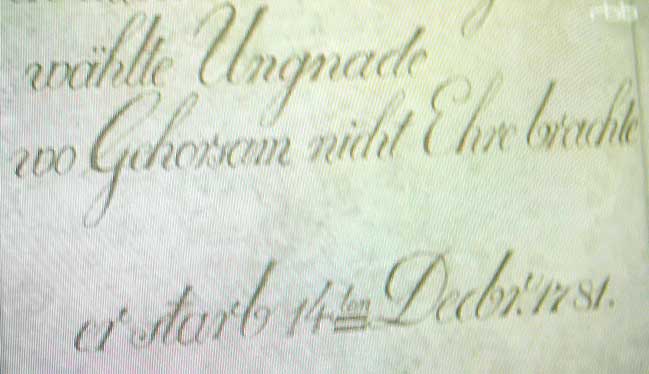 rbb
wählte Ungnade
wo Gehorsam nicht Ehre brachte
er starb 14ten Decbr. 1781.